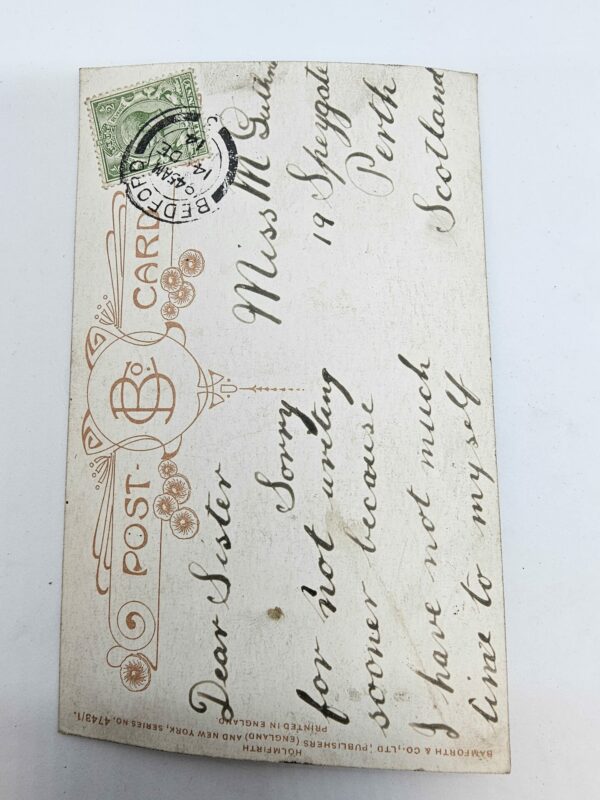 POST-CARD
B Co.
BEDFORD
945AM
14 DE
14
Dear Sister
Sorry
for not writing
sooner because
I have not much
time to myself
Miss M
19 Speygate
Perth
Scotland
BAMFORTH & CO., LTD, PUBLISHERS (ENGLAND) AND NEW YORK, SERIES NO. 4743/1.
HOLMFIRTH
PRINTED IN ENGLAND